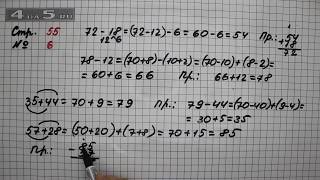 Стр. 55
№ 6
72 - 18 = (72-12)-6 = 60-6 = 54
12 6
Пр.: 54
+ 18
72
78-12 = (70+8)-(10+2) = (70-10)+(8-2) =
= 60+6 = 66 Пр.: 66+12 = 78
35+44 = 70+9 = 79 Пр.: 79-44 = (70-40)+(9-4) =
= 30+5 = 35
57+28 = (50+20)+(7+8) = 70+15 = 85
Пр.: - 85